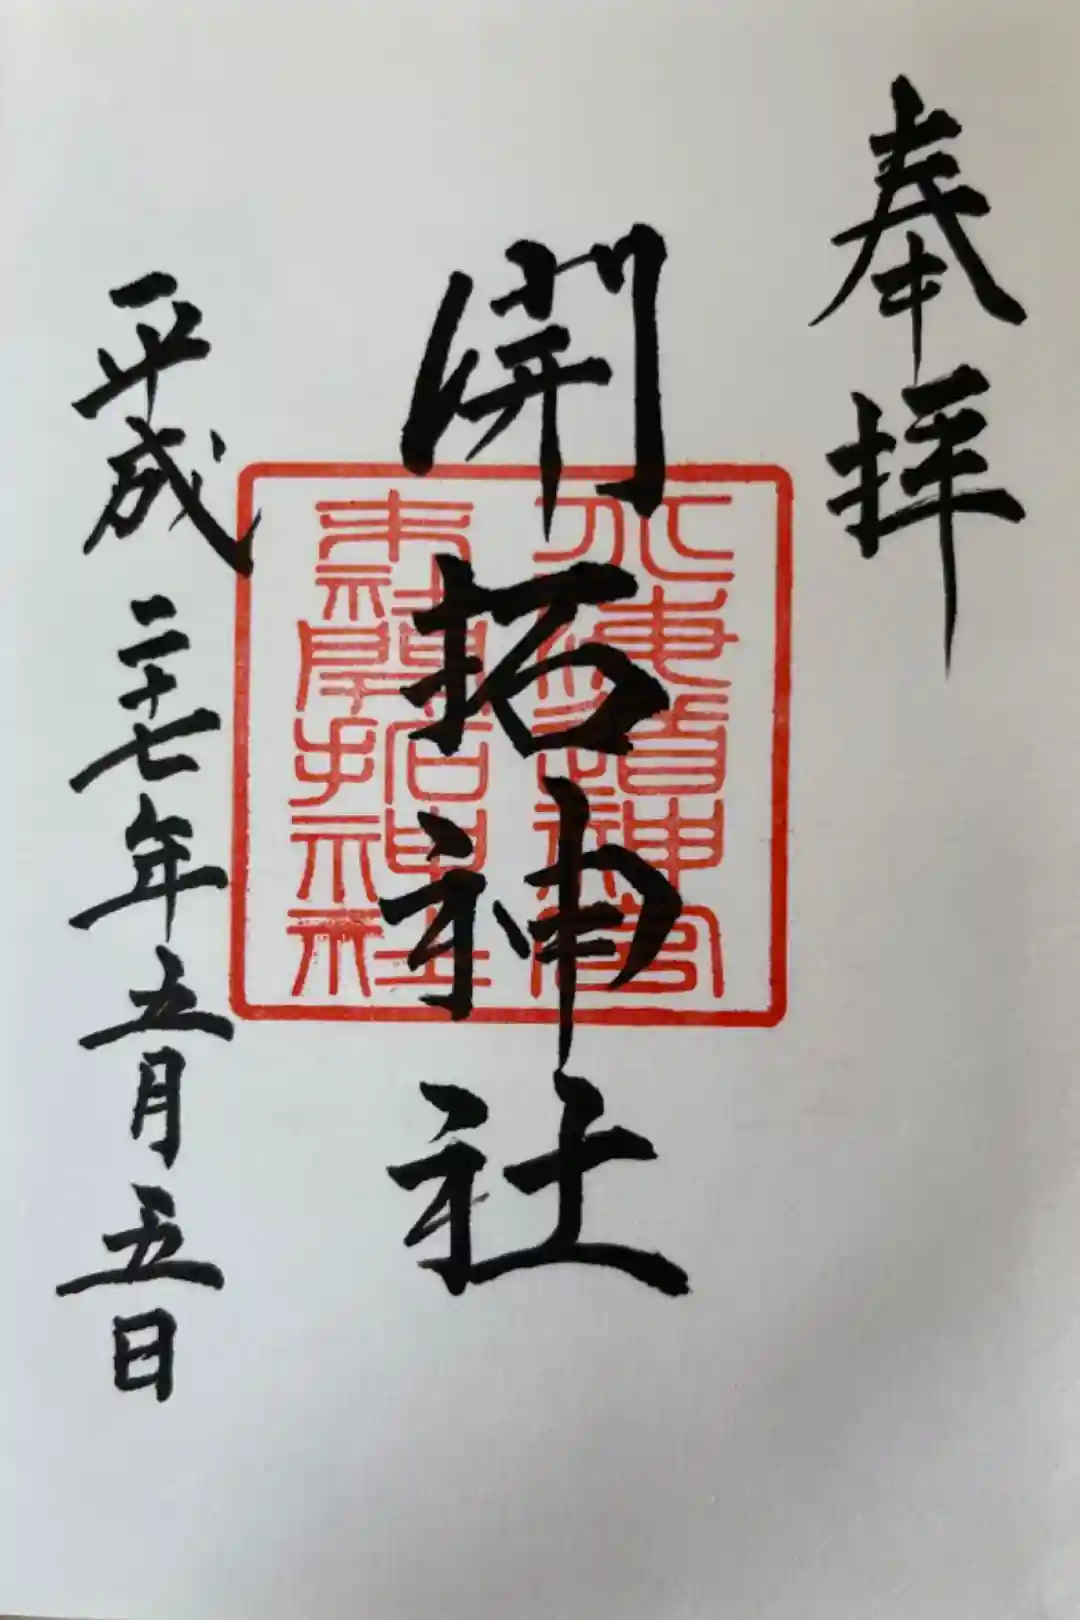 奉拝
開拓神社
北海道神宮
末社開拓神社
平成二十七年五月五日